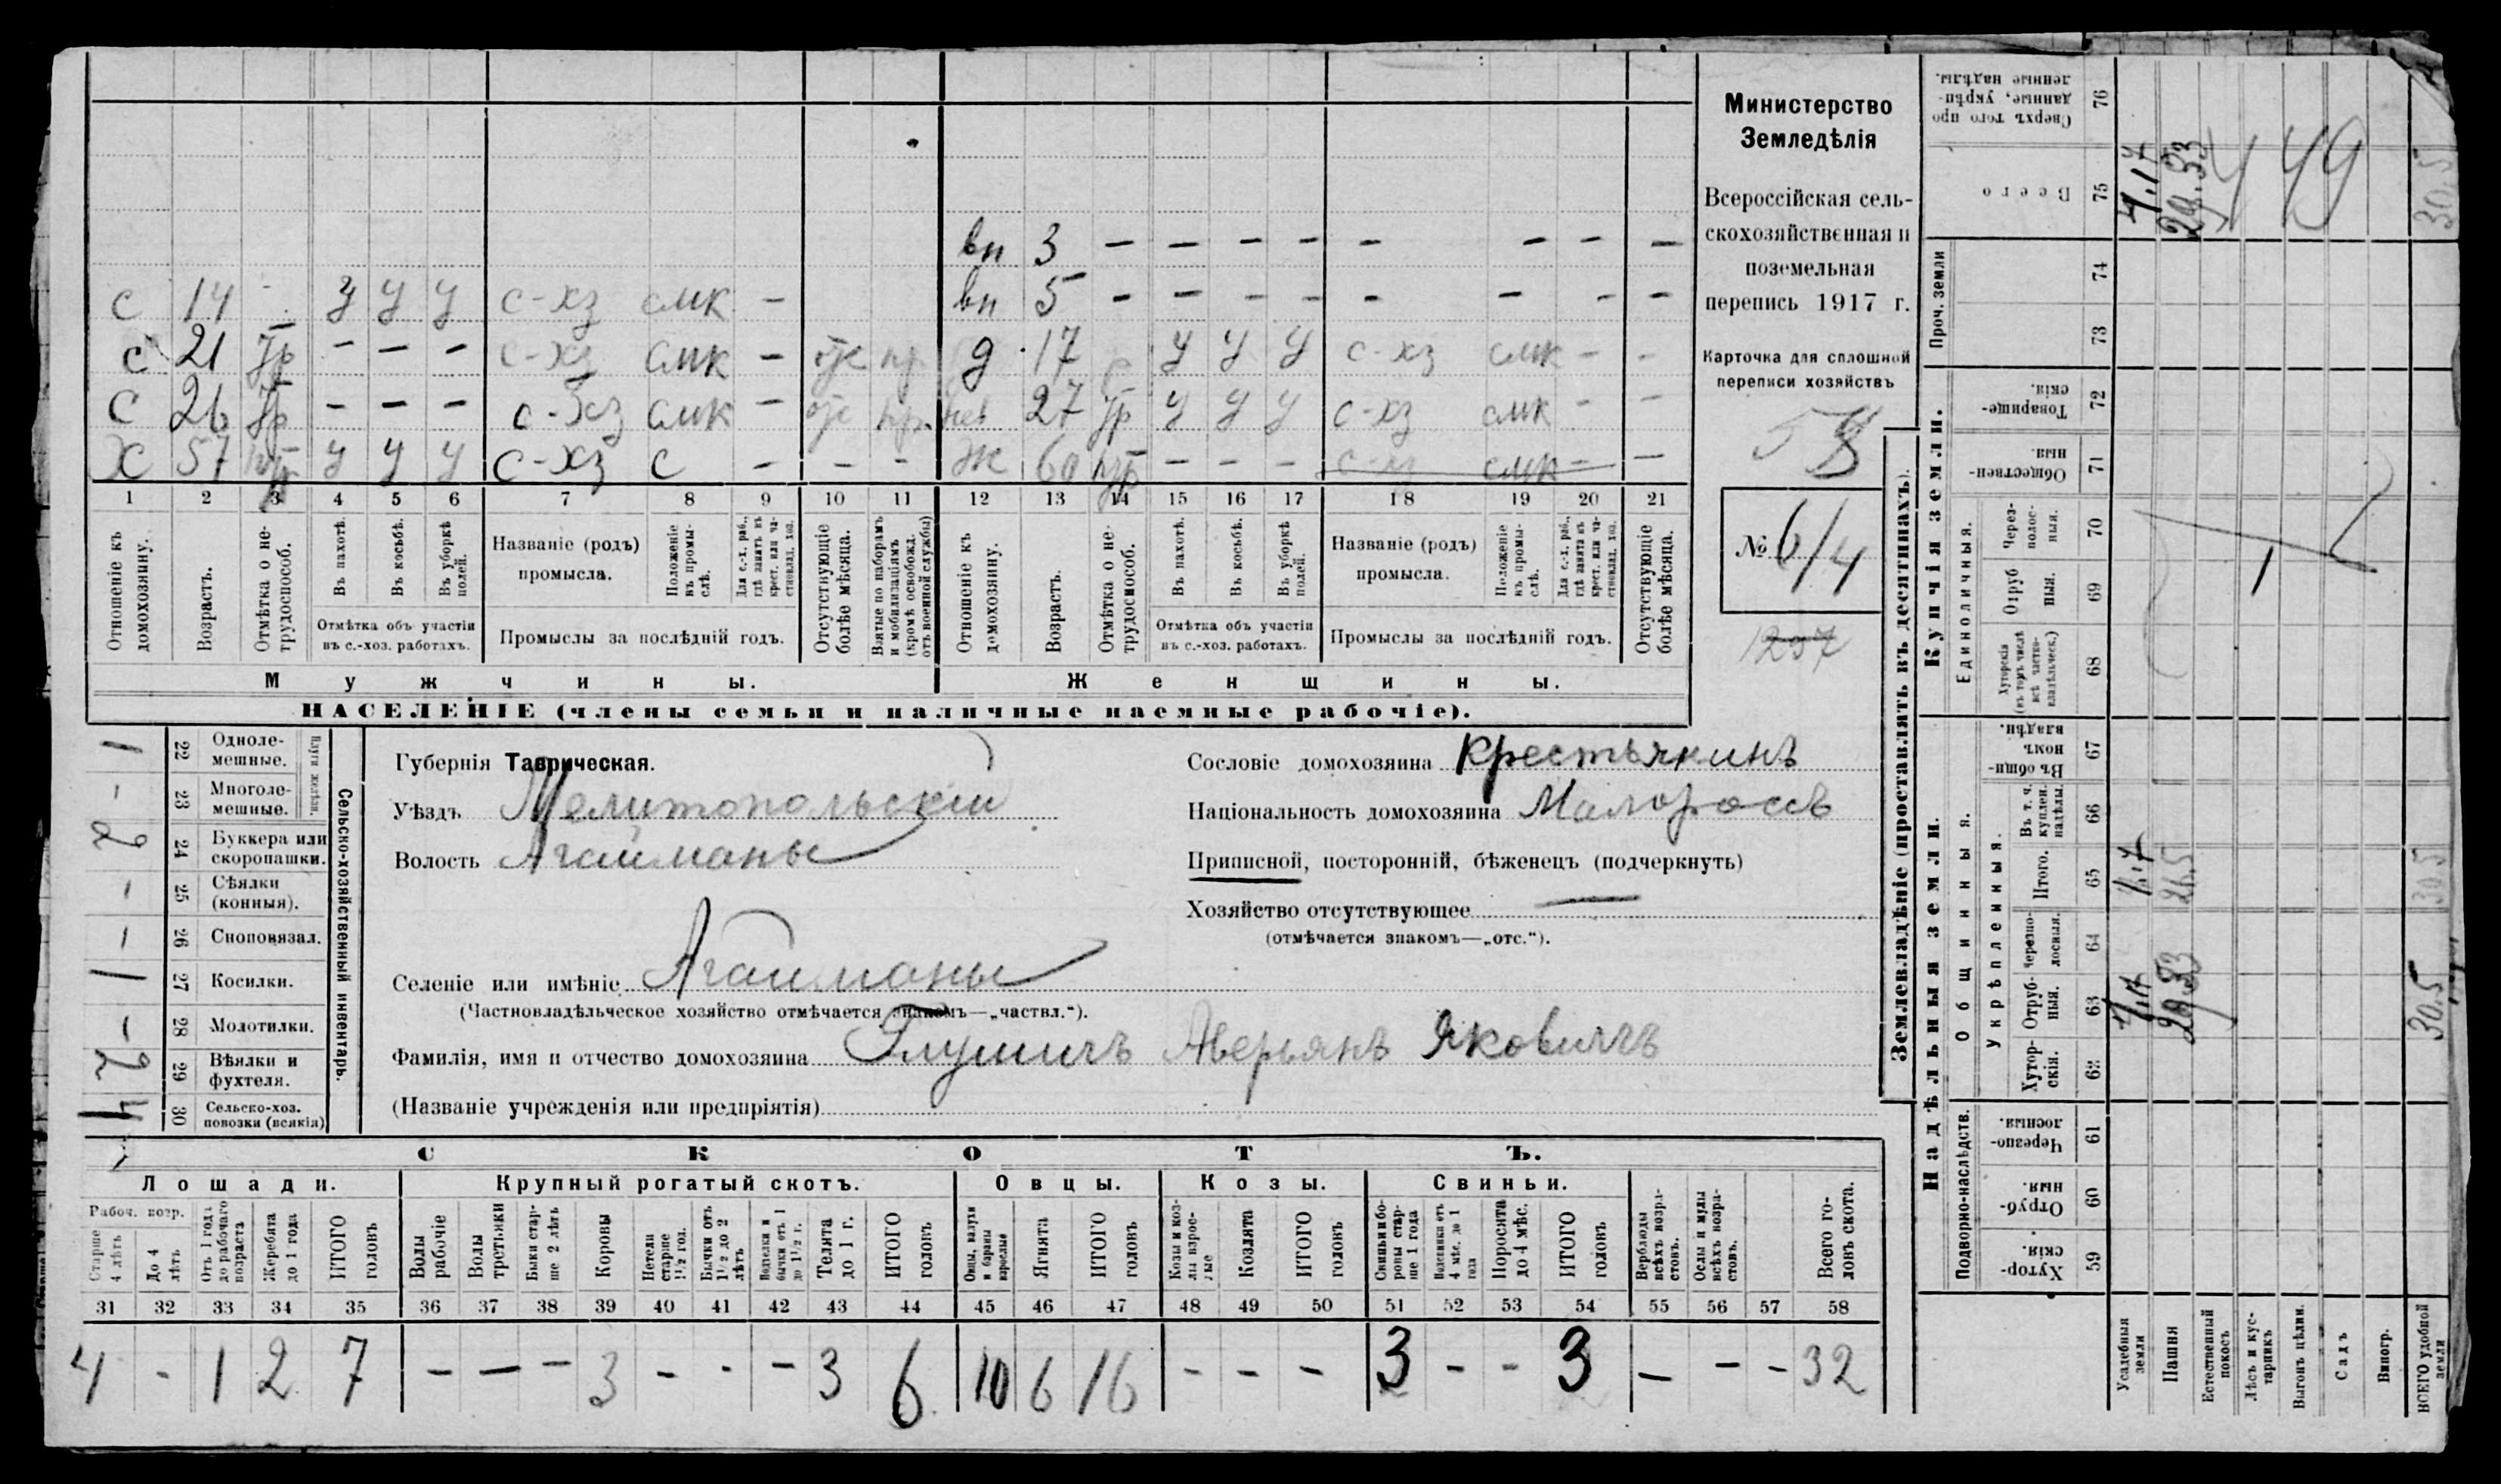 вп 3 — — — — — — — —
с 14 - У У У с-хз смк -
вп 5 — — — — — — — —
с 21 — — — с-хз смк —
д 17 У У У с-хз смк - -
с 26 — — — с-хз смк —
27 У У У с-хз смк - -
Х 57 У У У с-хз с - - -
Ж 60 - - - с-хз смк - —
1 2 3 4 5 6 7 8 9 10 11 12 13 14 15 16 17 18 19 20 21
Отношеніе къ домохозяину.
Возрастъ.
Отмѣтка о не-трудоспособ.
Въ пахотѣ.
Въ косьбѣ.
Въ уборкѣ полей.
Отмѣтка объ участіи
въ с.-хоз. работахъ.
Названіе (родъ)
промысла.
Положеніе въ промы-слѣ.
Для с.-х. раб., гдѣ занятъ въ крест. или ча-стновлад. хоз.
Промыслы за послѣдній годъ.
Отсутствующіе болѣе мѣсяца.
Взятые по наборамъ и мобилизаціямъ (кромѣ освобожд. отъ военной службы)
Отношеніе къ домохозяину.
Возрастъ.
Отмѣтка о не-трудоспособ.
Въ пахотѣ.
Въ косьбѣ.
Въ уборкѣ полей.
Отмѣтка объ участіи
въ с.-хоз. работахъ.
Названіе (родъ)
промысла.
Положеніе въ промы-слѣ.
Для с.-х. раб., гдѣ занята въ крест. или ча-стновлад. хоз.
Промыслы за послѣдній годъ.
Отсутствующіе болѣе мѣсяца.
Мужчины.
Женщины.
НАСЕЛЕНІЕ (члены семьи и наличные наемные рабочіе).
Министерство
Земледѣлія
Всероссійская сель-
скохозяйственная и
поземельная
перепись 1917 г.
Карточка для сплошной
переписи хозяйствъ
№ 614
1257
Сельско-хозяйственный инвентарь.
Плуги желѣзн.
1 22 Однолемешные.
- 23 Многолемешные.
2 24 Буккера или скоропашки.
- 25 Сѣялки (конныя).
- 26 Сноповязал.
1 27 Косилки.
- 28 Молотилки.
2 29 Вѣялки и фухтеля.
4 30 Сельско-хоз. повозки (всякія)
Губернія Таврическая.
Уѣздъ Мелитопольскій
Волость Агайманы
Селеніе или имѣніе Агайманы
(Частновладѣльческое хозяйство отмѣчается знакомъ—„частвл.“).
Сословіе домохозяина крестьянинъ
Національность домохозяина Малороссъ
Приписной, посторонній, бѣженецъ (подчеркнуть)
Хозяйство отсутствующее —
(отмѣчается знакомъ—„отс.“).
Фамилія, имя и отчество домохозяина Аверьянъ Яковичъ
(Названіе учрежденія или предпріятія)
СКОТЪ.
Лошади.
Крупный рогатый скотъ.
Овцы.
Козы.
Свиньи.
Рабоч. возр.
Старше 4 лѣтъ
До 4 лѣтъ
Отъ 1 года до рабочаго возраста
Жеребята до 1 года
ИТОГО головъ
Волы рабочіе
Волы третьяки
Быки стар-ше 2 лѣтъ
Коровы
Нетели старше 1½ год.
Бычки отъ 1½ до 2 лѣтъ
Телки и бычки отъ 1 до 1½ г.
Телята до 1 г.
ИТОГО головъ
Овцы, валухи и бараны взрослые
Ягнята
ИТОГО головъ
Козы и коз-лы взрос-лые
Козлята
ИТОГО головъ
Свиньи и бо-ровы стар-ше 1 года
Подсвинки отъ 4 мѣс. до 1 года
Поросята до 4 мѣс.
ИТОГО головъ
Верблюды всѣхъ возра-стовъ.
Ослы и мулы всѣхъ возра-стовъ.
Всего го-ловъ скота.
31 32 33 34 35 36 37 38 39 40 41 42 43 44 45 46 47 48 49 50 51 52 53 54 55 56 57 58
4 - 1 2 7 - - - 3 - - - 3 6 10 6 16 - - - 3 - - 3 - - - 32
Землевладѣніе (проставлять въ десятинахъ).
Надѣльныя земли.
Купчія земли.
Проч. земли
Подворно-наслѣдств.
Общинныя.
Укрѣпленныя.
Единоличныя.
Сверхъ того про данные, укрѣп-ленные надѣлы. 76
Всего 75 4.17 29.33 30.5
74
73
Товарище-скія. 72
Обществен-ныя. 71
Через-полос-ныя. 70
Отруб ныя. 69
Хуторскія (въ томъ числѣ всѣ частно-владѣльческ.) 68
Въ общин-номъ владѣн. 67
Въ т. ч. куплен. надѣлы. 66
Итого. 65 26.5 30.5
Черезпо-лосныя. 64
Отруб-ныя. 63 29.33 30.5
Хутор-скія. 62
Черезпо-лосныя. 61
Отруб-ныя. 60
Хутор-скія. 59
Усадебныя земли
Пашня
Естественный покосъ
Лѣсъ и кус-тарникъ
Выгонъ цѣлин.
Садъ
Виногр.
ВСЕГО удобной земли